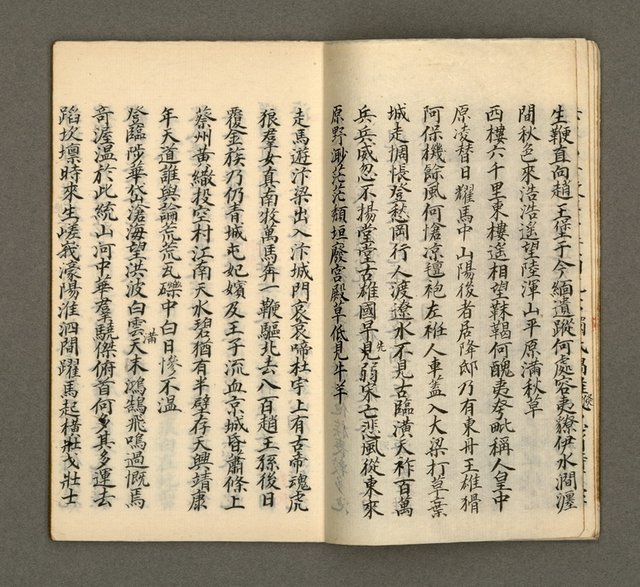 生鞭直向趙王堡于今緬遺蹤何處容夷獠伊水澗瀍
間秋色來浩浩遙望陸渾山平原滿秋草
西樓六千里東樓遙相望靺鞨何醜夷夸毗稱人皇中
原凌替日耀馬中山陽後者居降邸乃有東丹王雄猾
阿保機餘風何愴凉氊袍左袵人車蓋入大梁打草葉
城走惆悵登愁岡行人渡遼水不見古臨潢天祚百萬
兵兵威忽不揚堂堂古雄國早見先弱宋亡悲風從東來
原野渺茫茫頹垣廢宮殿草低見牛羊
走馬遊汴梁出入汴城門哀哀啼杜宇上有古帝魂虎
狼羣女真南牧萬馬奔一鞭驅北去八百趙王孫後日
覆金族乃仍青城屯妃嬪及王子流血京城昏蕭條上
蔡州黃繖投空村江南天水碧猶有半壁存天興靖康
年天道誰與論荒荒瓦礫中白日慘不溫
登臨陟華岱滄海望洪波白雲滿天末鴻鵠飛鳴過慨焉
奇渥溫於此統山河中華羣驍傑俯首何多其多運去
蹈坎壈時來生嵯峩濠陽淮泗間躍馬起橫戈壯士